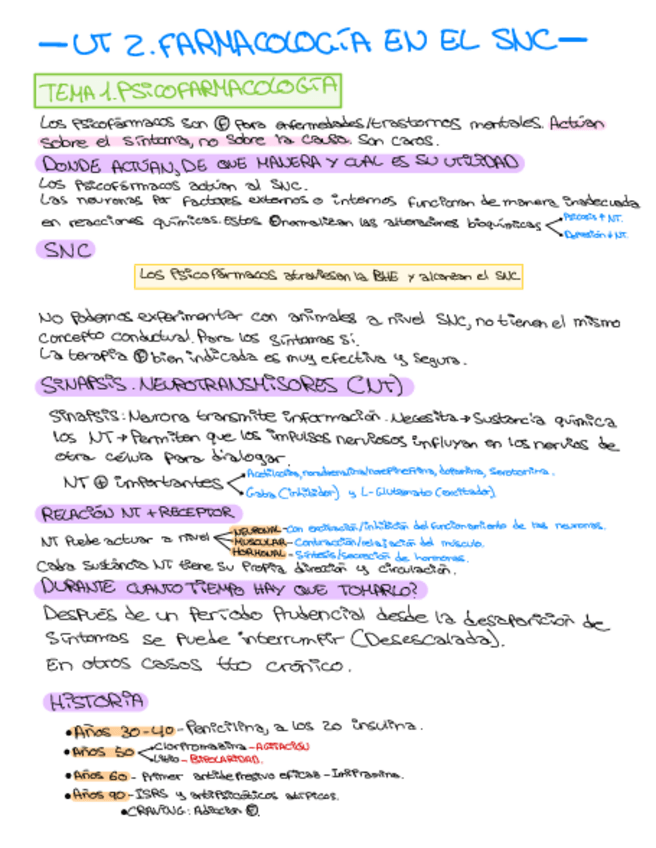 - UT 2. FARMACOLOGÍA EN EL SNC -
TEMA 1. PSICOFARMACOLOGÍA
Los psicofármacos son Ⓕ para enfermedades/trastornos mentales. Actúan
sobre el síntoma, no sobre la causa. Son caros.
DONDE ACTÚAN, DE QUE MANERA Y CUAL ES SU UTILIDAD
Los psicofármacos actúan al SNC.
Las neuronas por factores externos o internos funcionan de manera inadecuada
en reacciones químicas. Estos Ⓕ normalizan las alteraciones bioquímicas
Psicosis ↑ NT.
Depresión ↓ NT.
SNC
Los psicofármacos atraviesan la BHE y alcanzan el SNC
No podemos experimentar con animales a nivel SNC, no tienen el mismo
concepto conductual. Para los síntomas sí.
La terapia Ⓕ bien indicada es muy efectiva y segura.
SINAPSIS. NEUROTRANSMISORES (NT)
Sinapsis: Neurona transmite información. Necesita → Sustancia química
los NT → Permiten que los impulsos nerviosos influyan en los nervios de
otra célula para dialogar.
NT ⊕ importantes
Acetilcolina, noradrenalina/norepinefrina, dopamina, serotonina.
Gaba (inhibidor) y L-Glutamato (excitador)
RELACIÓN NT + RECEPTOR
NT puede actuar a nivel
NEURONAL - Con excitación/inhibición del funcionamiento de las neuronas.
MUSCULAR - Contracción/relajación del músculo.
HORMONAL - Síntesis/secreción de hormonas.
Cada sustancia NT tiene su propia dirección y circulación.
DURANTE CUANTO TIEMPO HAY QUE TOMARLO?
Después de un período prudencial desde la desaparición de
síntomas se puede interrumpir (Desescalada).
En otros casos tto crónico.
HISTORIA
• Años 30-40 - Penicilina, a los 20 insulina.
• Años 50
Clorpromazina - AGITACIÓN
Litio - BIPOLARIDAD.
• Años 60 - Primer antidepresivo eficaz - Imipramina.
• Años 90 - ISRS y antipsicóticos atípicos.
• CRAVING: Adicción Ⓕ.